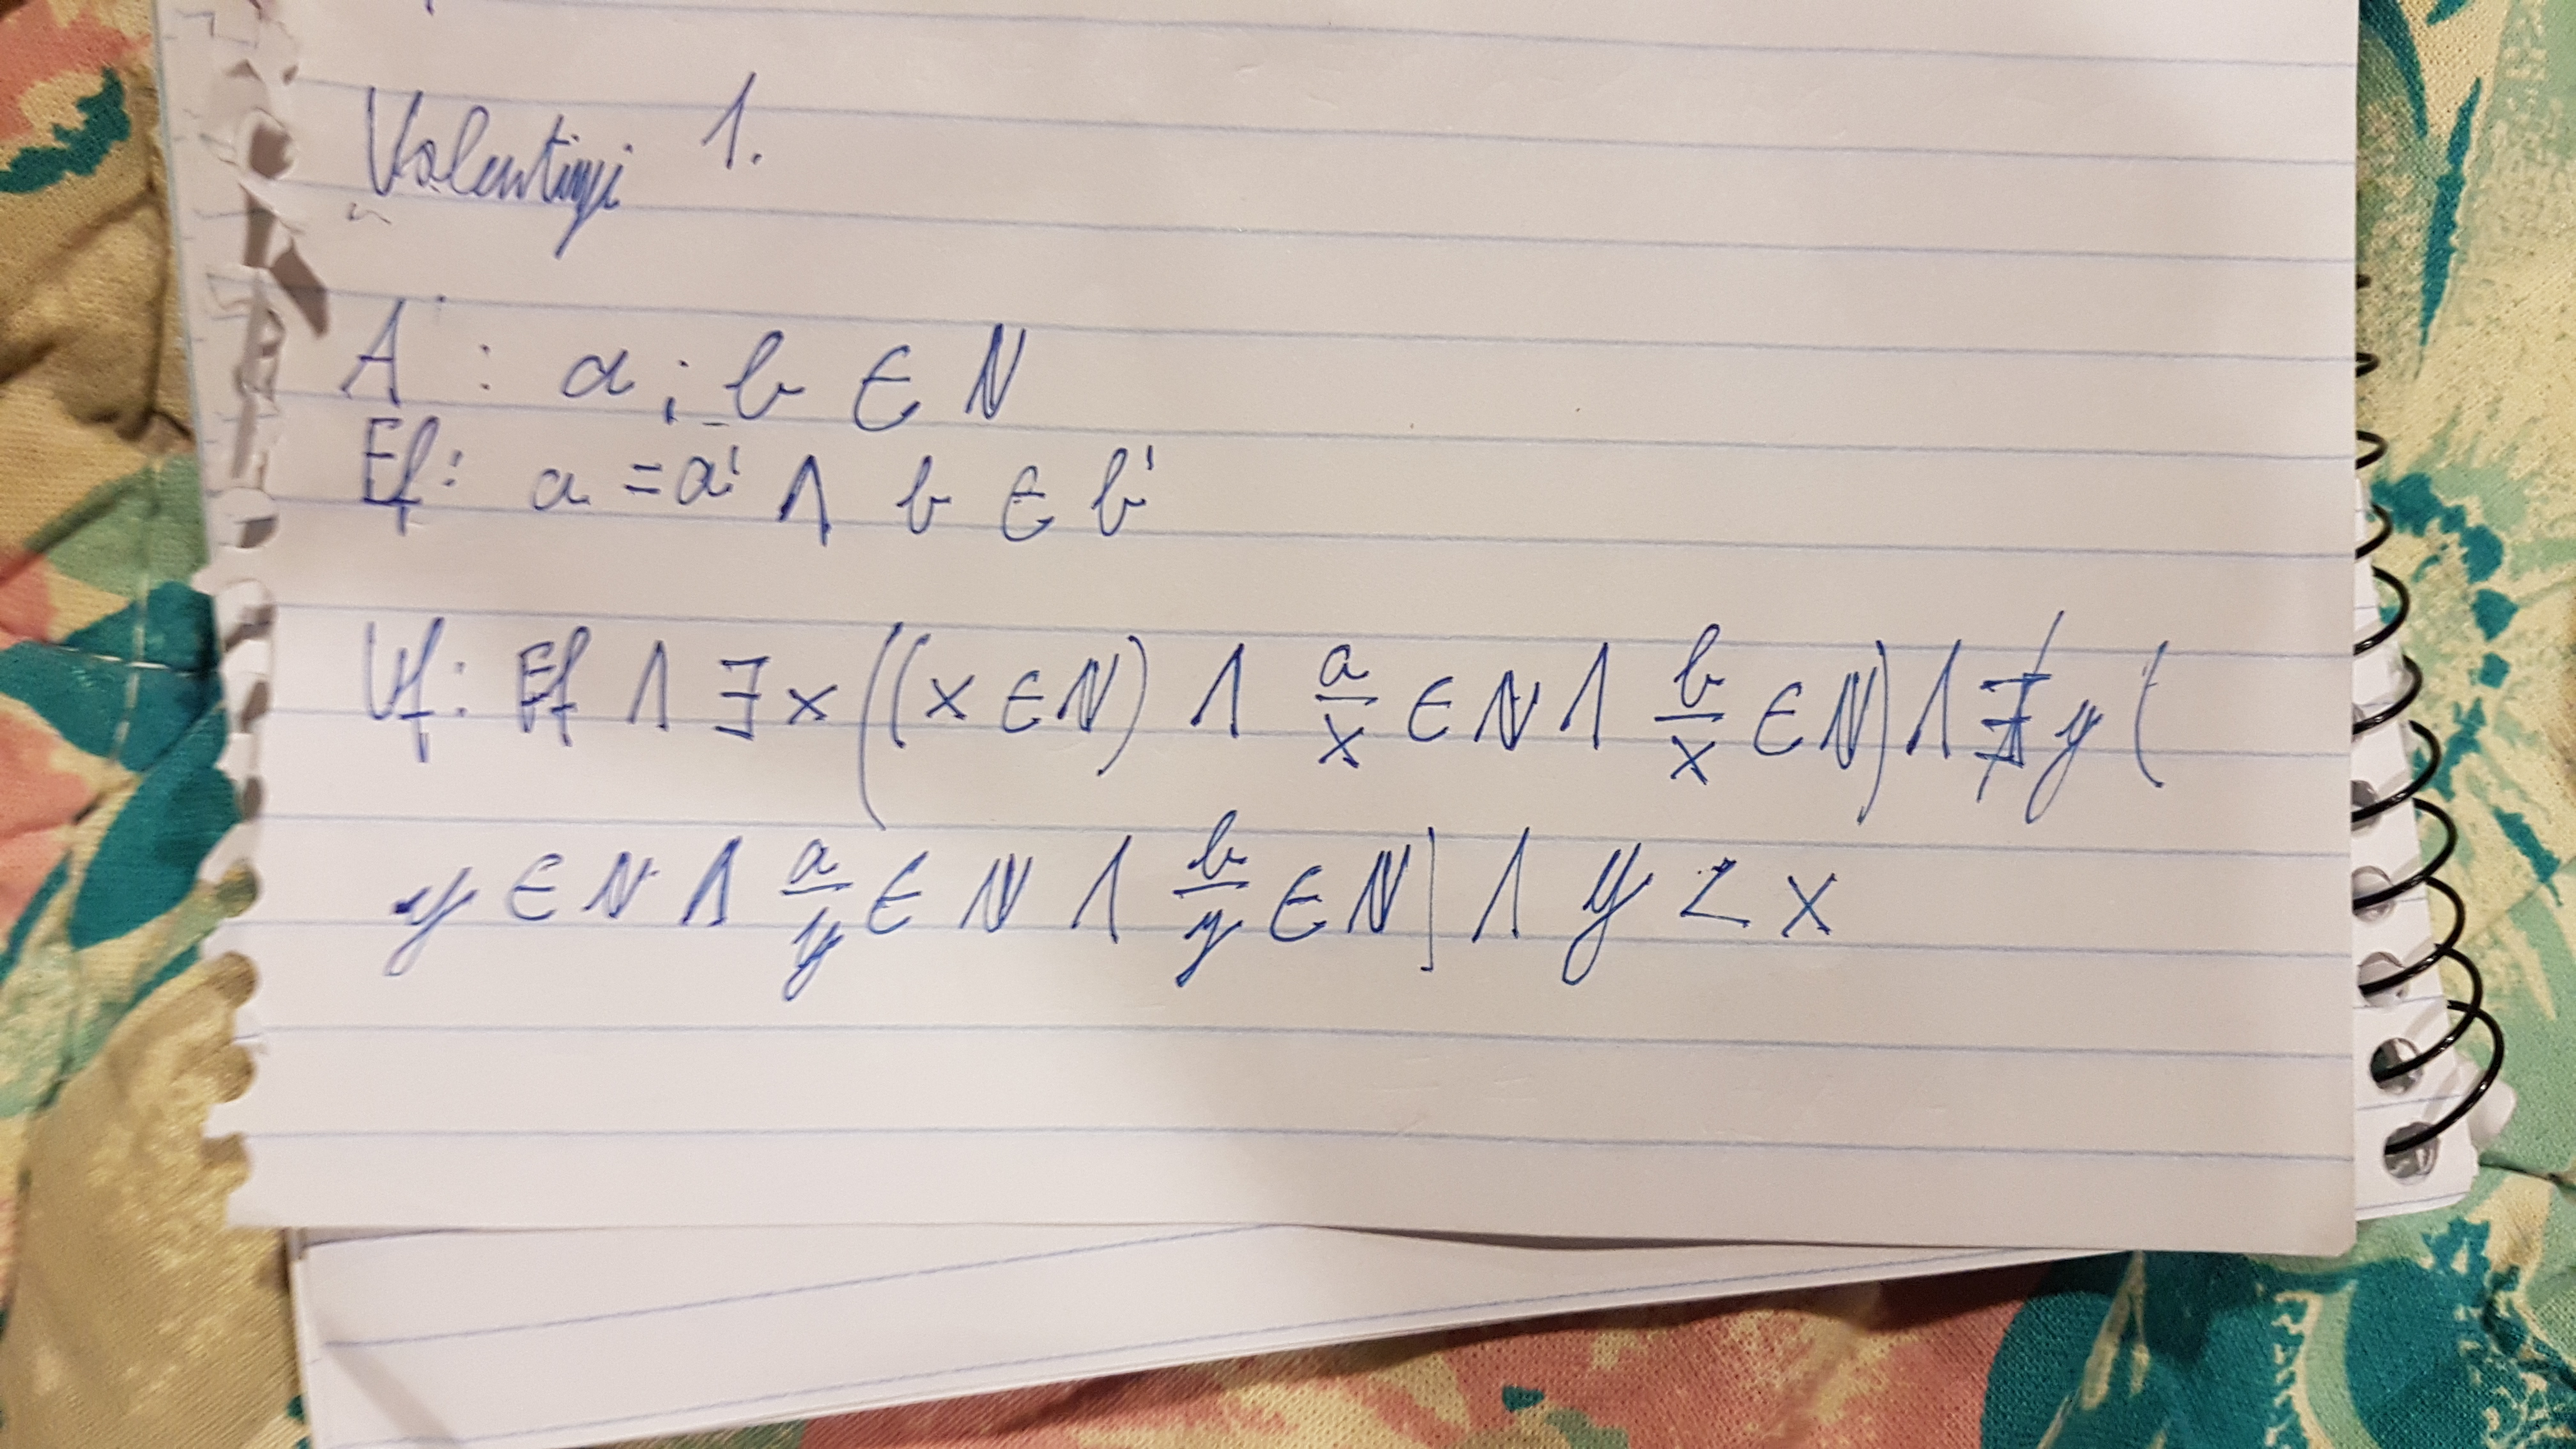 Valentinyi 1.
A : a, b ∈ N
Ef: a = a' ∧ b ∈ b'
Uf: Ef ∧ ∃x((x ∈ N) ∧ a/x ∈ N ∧ b/x ∈ N) ∧ ∄y(
y ∈ N ∧ a/y ∈ N ∧ b/y ∈ N) ∧ y < x